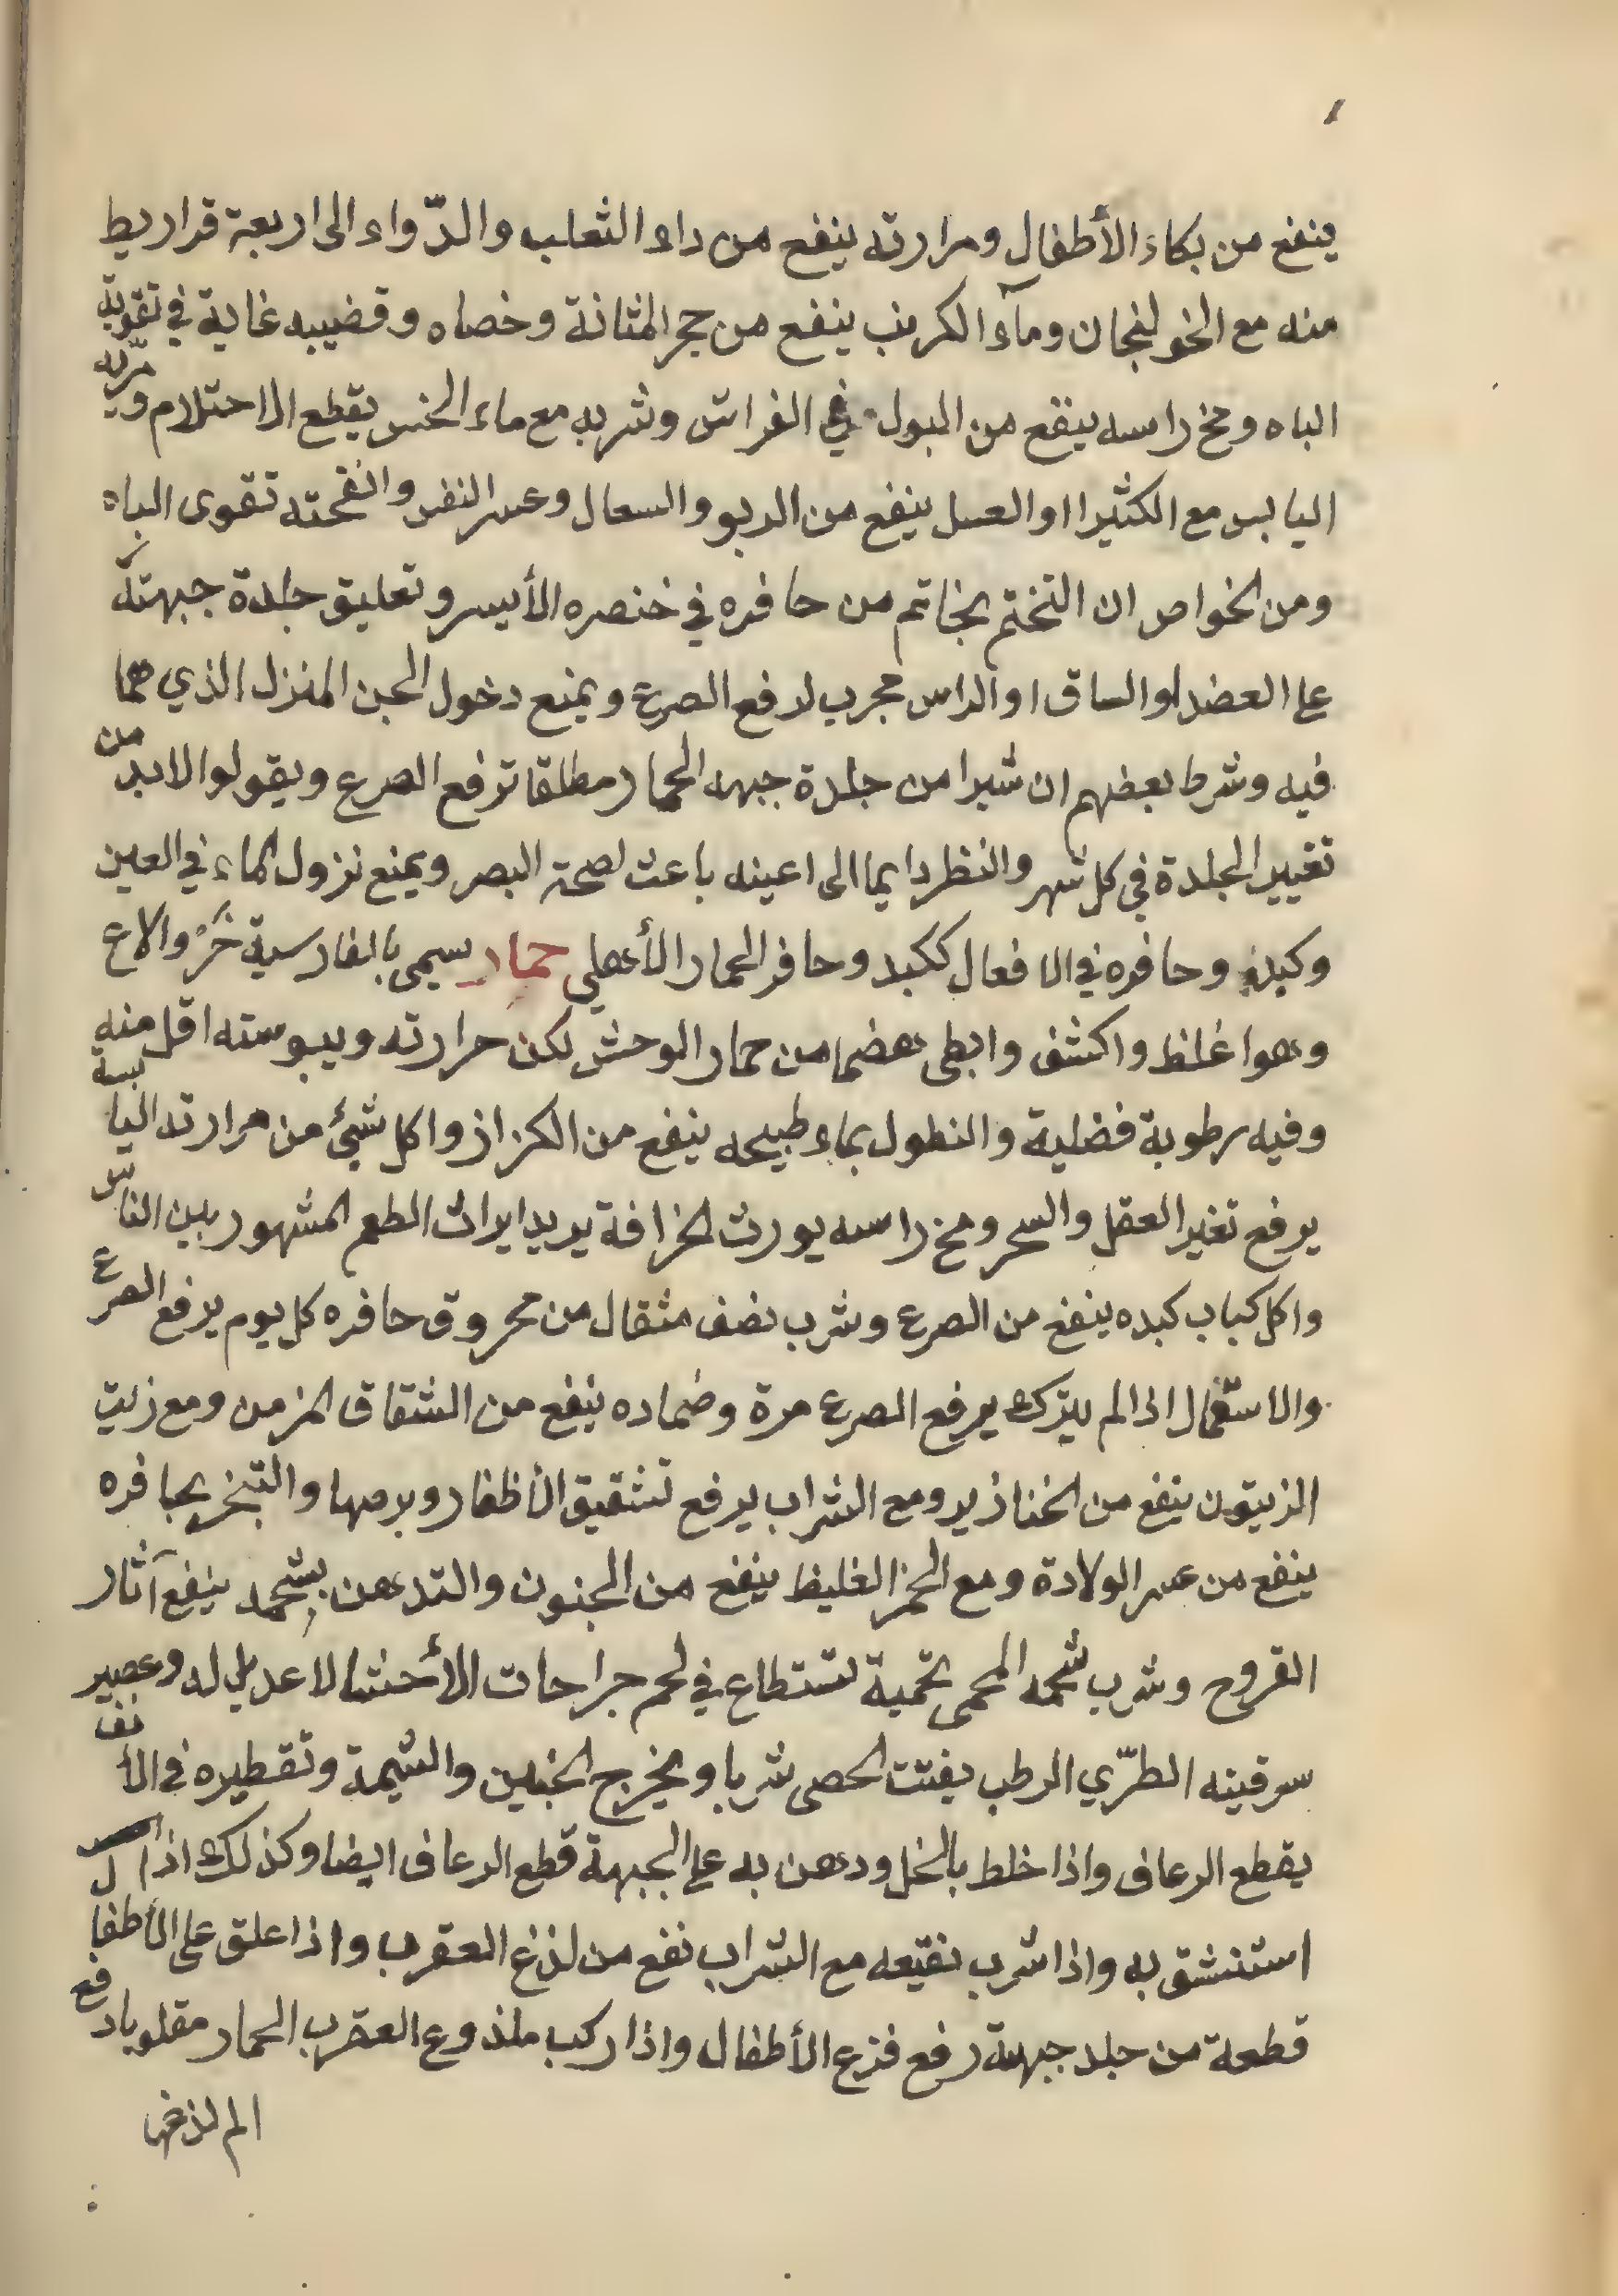 ينفع من بكاء الأطفال ومرارته ينفع من داء الثعلب والدّواء الى اربعة قراريط
منه مع الخولنجان ومآء الكرنب ينفع من حجر المثانة وخصاه وقضيبه غاية في تقوية
الباه ومخ راسه ينفع من البول في الفراش وشربه مع ماء الخس يقطع الاحتلام
اليابس مع الكثيرا او العسل ينفع من الربو والسعال وعسر النفس وانفحته تقوى الباه
ومن الخواص ان التختم بخاتم من حافره في خنصره الأيسر وتعليق جلدة جبهته
على العضد او الساق او الراس مجرب لدفع الصرع ويمنع دخول الجن المنزل الذي هما
فيه وشرط بعضهم ان شبرا من جلدة جبهه الحمار مطلقا ترفع الصرع ويقولوا لابد من
تغيير الجلدة في كل شهر والنظر دايما الى اعينه باعث لصحة البصر ويمنع نزول الماء في العين
وكبده وحافره في الافعال ككبد وحافر الحمار الأهلي حمار سيمى بالفارسية خَرْ والاع
وهوا غلظ واكثف وابطى هضما من حمار الوحش لكن حرارته ويبوسته اقل منه
وفيه رطوبة فضلية والنطول بماء طبيخه ينفع من الكزاز واكل شيئ من مرارته اليابسة
يرفع تغير العقل والسحر ومخ راسه يورث الخرافة يريد ايراث الطعم المشهور بين الناس
واكل كباب كبده ينفع من الصرع وشرب نصف مثقال من محروق حافره كل يوم يرفع الصرع
والاستعمال اذا لم يترك يرفع الصرع مرة وضماده ينفع من الشقاق المزمن ومع زيت
الزيتون ينفع من الخنازير ومع الشراب يرفع تشقيق الأظفار وبرصها والتبخر بحافره
ينفع من عسر الولادة ومع الخمر الغليظ ينفع من الجنون والتدهن بشحمه ينفع آثار
القروح وشرب شحمه المحمى تحمية تستطاع في لحم جراحات الأحشا لا عديل له وعصير
سرقينه الطرّي الرطب يفتت الحصى شربا ويخرج الجنين والشيمة وتقطيره في الأنف
يقطع الرعاف واذا خلط بالخل ودهن به على الجبهة قطع الرعاف ايضا وكذلك اذا
استنشق به واذا شرب نقيعه مع الشراب نفع من لذغ العقرب واذا علق على الأطفال
قطعة من جلد جبهته رفع فزع الأطفال واذا ركب ملذوع العقرب الحمار مقلوبا رفع
الم لذغها